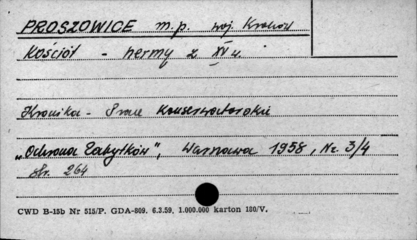 PROSZOWICE m.p. woj. Kraków
Kościół - hermy z XV w.
Kronika - Prace Konserwatorskie
„Ochrona Zabytków", Warszawa 1958, Nr. 3/4
str. 264
CWD B-15b Nr 515/P. GDA-809. 6.3.59. 1.000.000 karton 180/V.